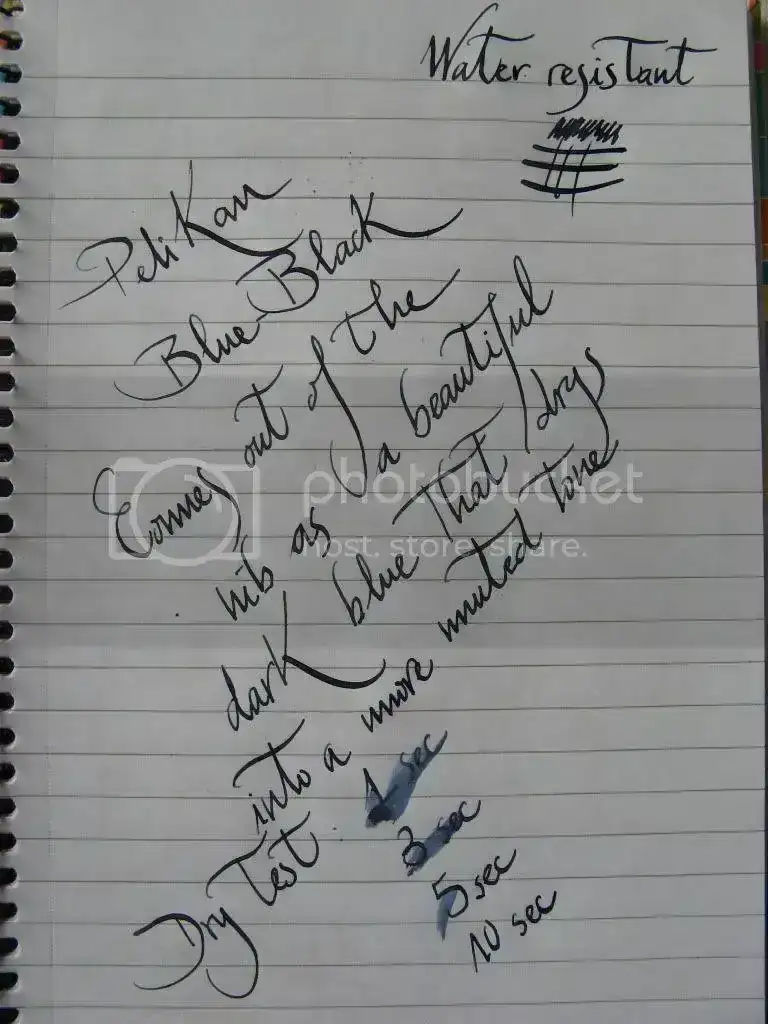 Water resistant
Pelikan
Blue-Black
Comes out of the
nib as a beautiful
dark blue that drys
into a more muted tone
Dry Test 1 sec
3 sec
5 sec
10 sec
photobucket
host. store. share.